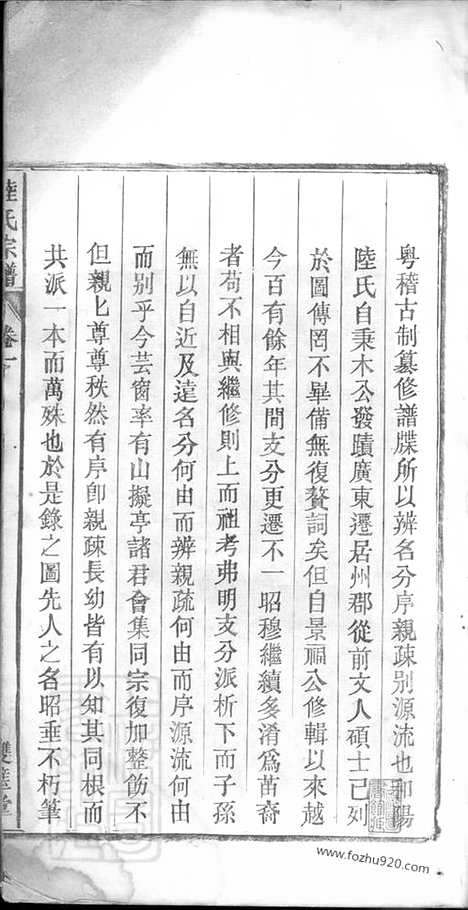 粵稽古制纂修譜牒所以辨名分序親疎別源流也和陽
陸氏自秉木公發蹟廣東遷居州郡從前文人碩士已列
於圖傳罔不畢備無復贅詞矣但自景福公修輯以來越
今百有餘年其間支分更遷不一昭穆繼續多淆為苗裔
者苟不相與繼修則上而祖考弗明支分派析下而子孫
無以自近及遠名分何由而辨親疏何由而序源流何由
而別乎今芸窗率有山擬亭諸君會集同宗復加整飭不
但親匕尊尊秩然有序卽親疎長幼皆有以知其同根而
共派一本而萬殊也於是錄之圖先人之名昭垂不朽筆
陸氏宗譜 卷一
雙 堂
www.fozhu920.com